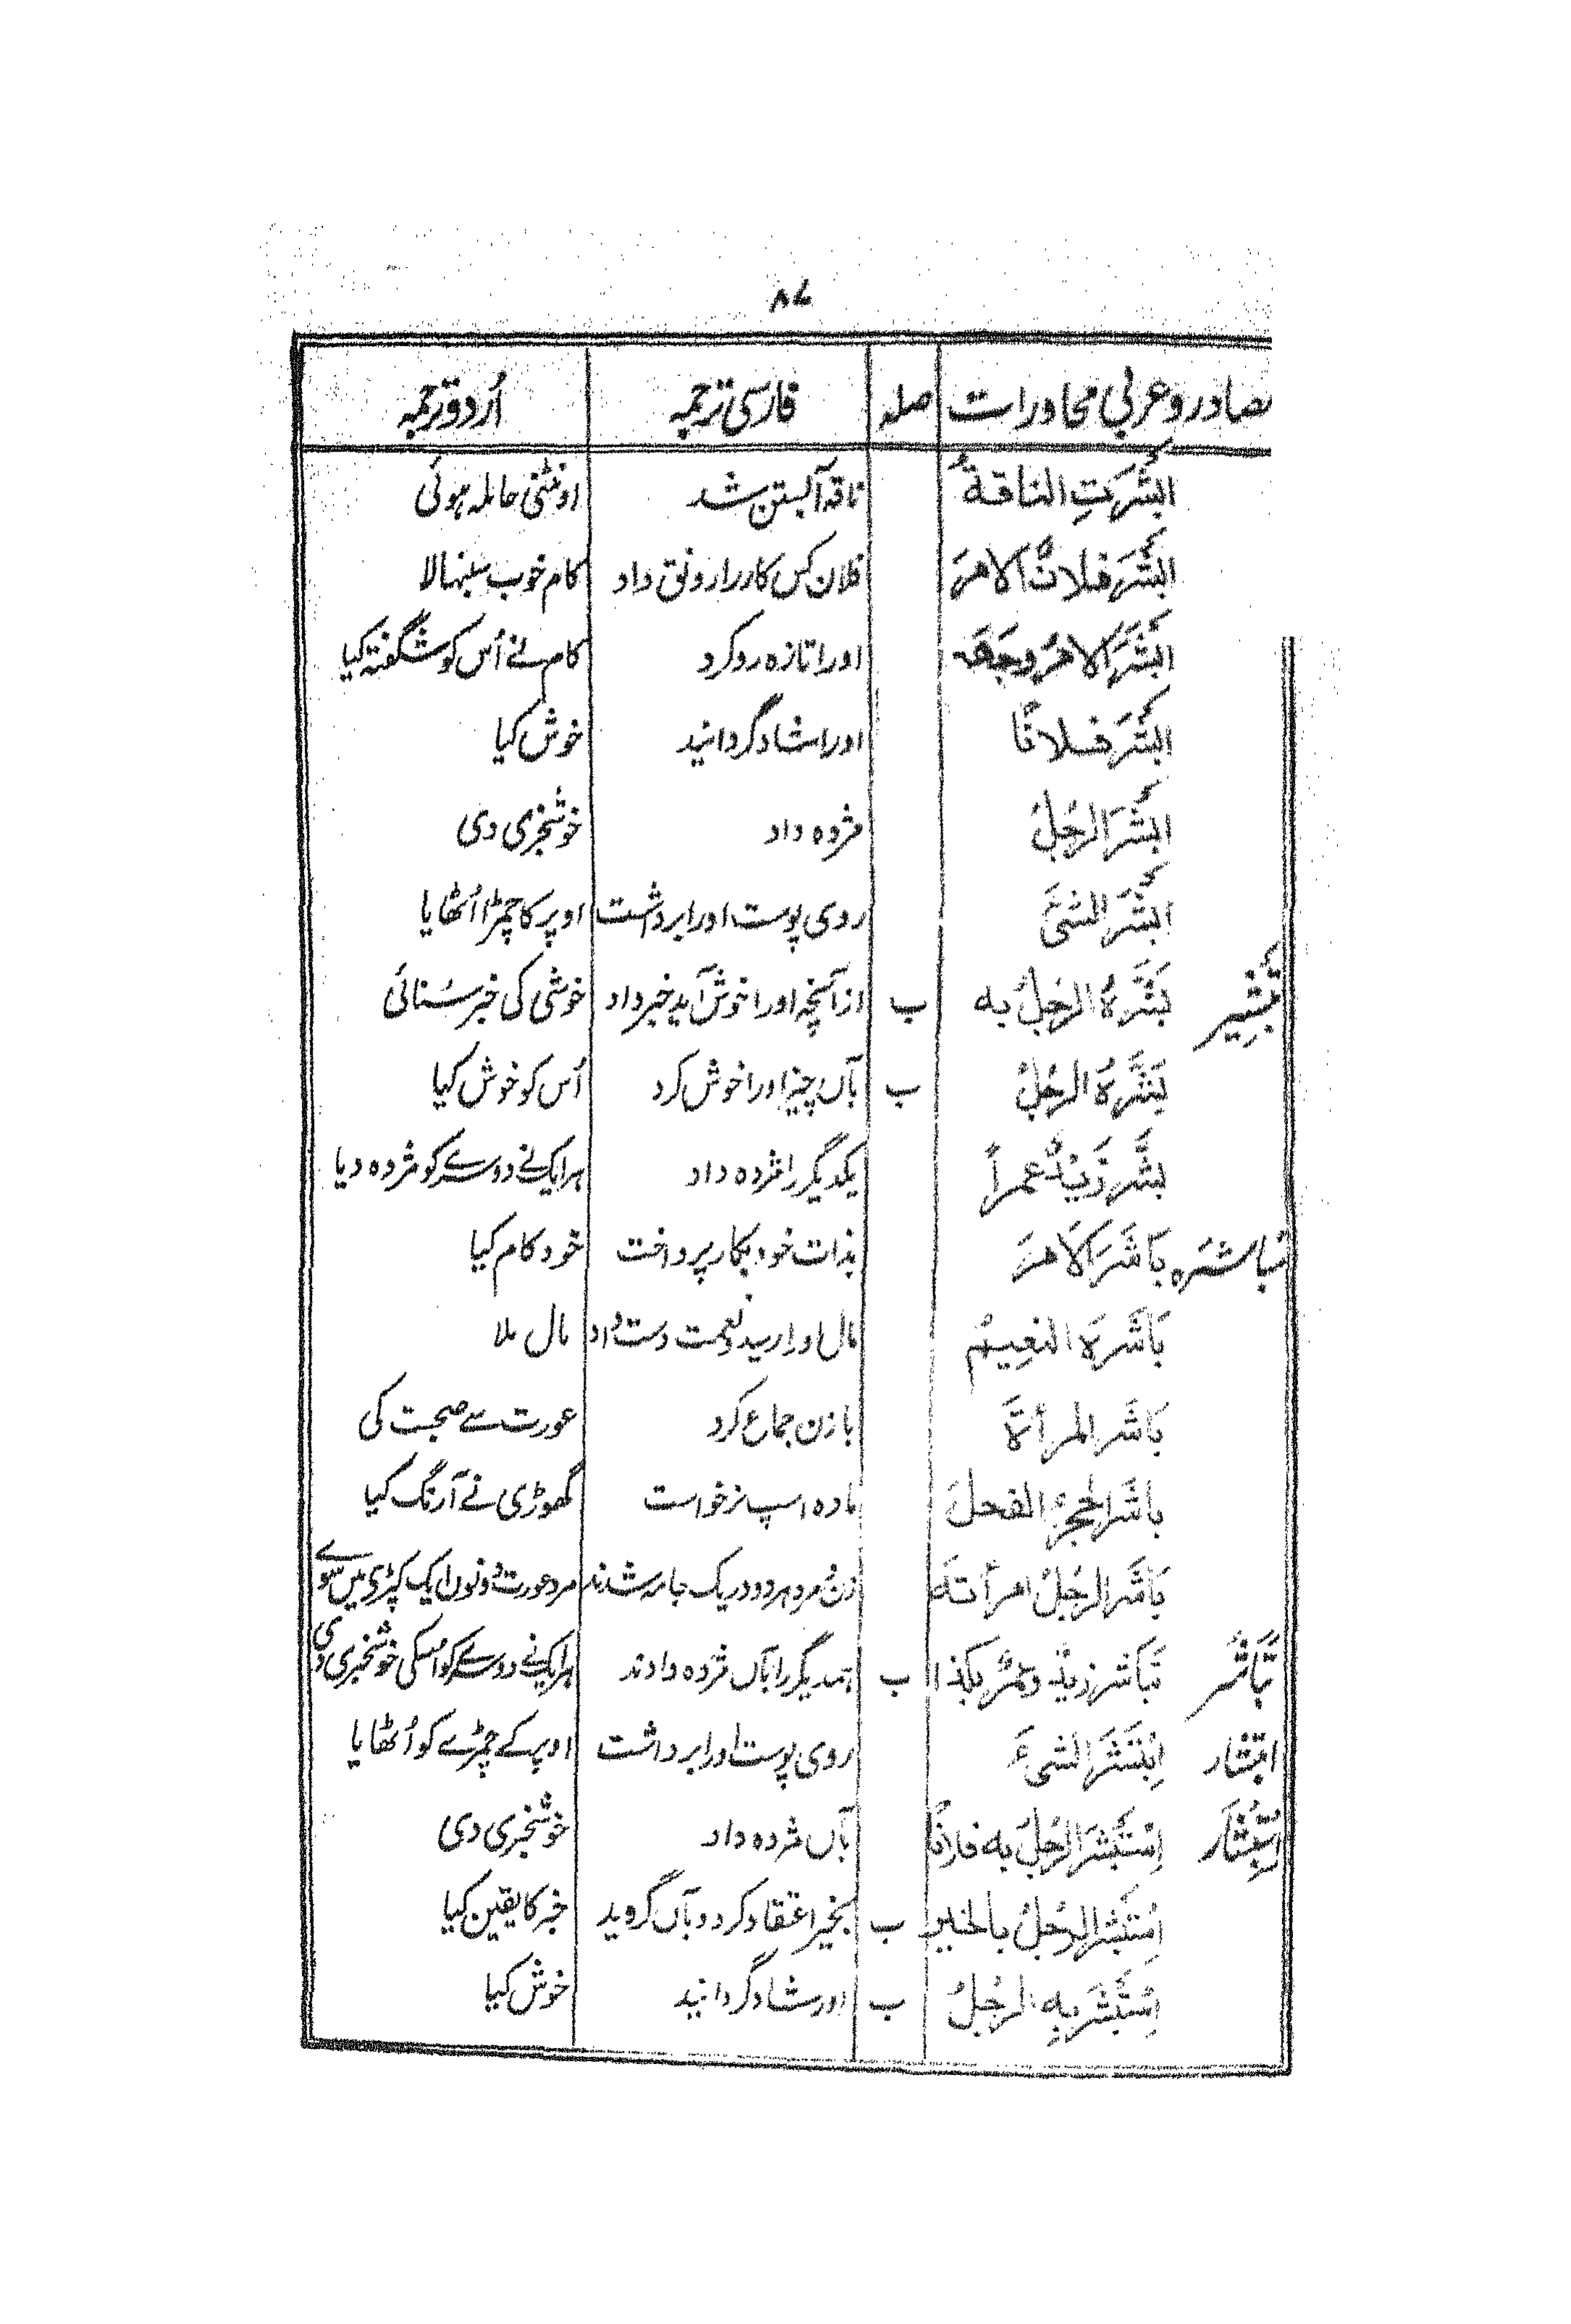 ٨٧
مصادر و عربی محاورات صلہ فارسی ترجمہ اُردو ترجمہ
اَبْشَرَتِ الناقةُ ناقہ آبستن شد اونٹنی حاملہ ہوئی
اَبْشَرَ فلانٌ الامرَ فلان کس کار را رونق داد کام خوب سنبھالا
اَبْشَرَ الامرُ وجهَه اورا تازہ رو کرد کام نے اُس کو شگفتہ کیا
اَبْشَرَ فلانًا اورا شاد گردانید خوش کیا
اَبْشَرَ الرجُلُ مژدہ داد خوشخبری دی
اَبْشَرَ الشئَ روی پوست اورا برداشت اوپر کا چمڑا اُٹھایا
تَبْشِیر بَشَّرَهُ الرجُلُ به ب ازآنچہ اورا خوش آید خبر داد خوشی کی خبر سُنائی
بَشَّرَهُ الرجُلُ ب بآں چیز اورا خوش کرد اُس کو خوش کیا
بَشَّرَ زَیْدٌ عمراً یکدیگر را مژدہ داد ہر ایک نے دوسرے کو مژدہ دیا
مُباشرہ بَاشَرَ الاَمرَ بذات خود بکار پرداخت خود کام کیا
بَاشَرَهُ النعِیمُ مال اورا رسید و نعمت دست داد مال ملا
بَاشَرَ المرأةَ با زن جماع کرد عورت سے صحبت کی
باشَرَ الحجرُ الفحلَ مادہ اسپ نر خواست گھوڑی نے آرنگ کیا
بَاشَرَ الرجُلُ امرأتَهٗ زن و مرد ہر دو در یک جامہ شدند مرد عورت دونوں ایک کپڑی میں سوے
تَبَاشُر تَبَاشَرَ زیدٌ وعمرٌ بکذا ب ہمدیگر را بآں مژدہ دادند ہر ایک نے دوسرے کو اسکی خوشخبری دی
ابتشار اِبْتَشَرَ الشیءَ روی پوست اورا برداشت اوپر کے چمڑے کو اُٹھایا
اِسْتِبْشَار اِسْتَبْشَرَ الرجُلُ به فلانًا بآں مژدہ داد خوشخبری دی
اِسْتَبْشَرَ الرجُلُ بالخبر ب بخبر اعتقاد کرد و بآں گروید خبر کا یقین کیا
اِسْتَبْشَرَ بِهِ الرجُلُ ب اورا شاد گردانید خوش کیا